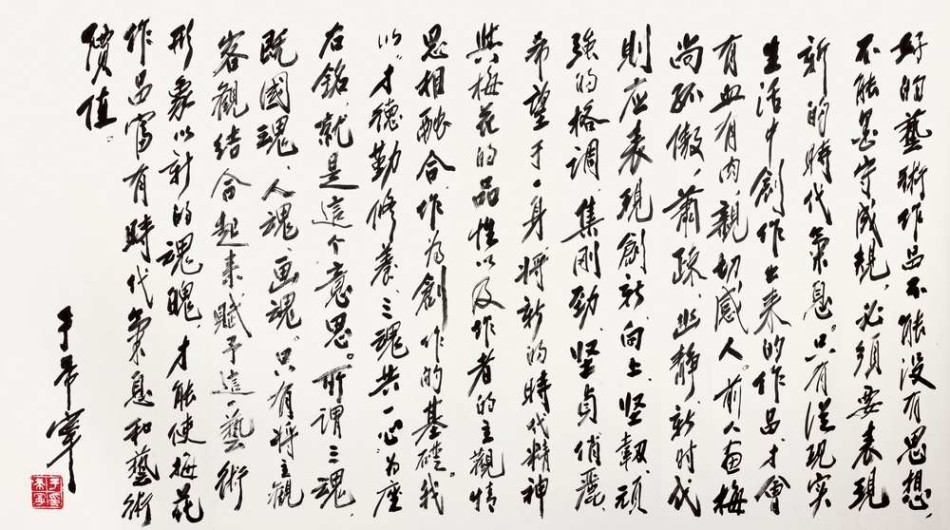 好的藝術作品不能没有思想，
不能墨守成規，必須要表現
新的時代氣息。只有從現實
生活中創作出来的作品，才會
有血有肉、親切、感人。前人画梅
尚孤傲，蕭疎、幽靜，新时代
則应表現創新、向上、坚韌、頑
強的格調，集刚劲、坚貞、俏麗、
希望于一身，将新的時代精神
與梅花的品性以及作者的主觀情
思相融合，作为創作的基礎。我
以“才德勤修養，三魂共一心”为座
右銘，就是這个意思。所謂三魂，
既國魂、人魂、画魂。只有将主觀
客觀结合起来賦予這一藝術
形象以新的魂魄，才能使梅花
作品富有時代氣息和藝術
價值。
于希寧